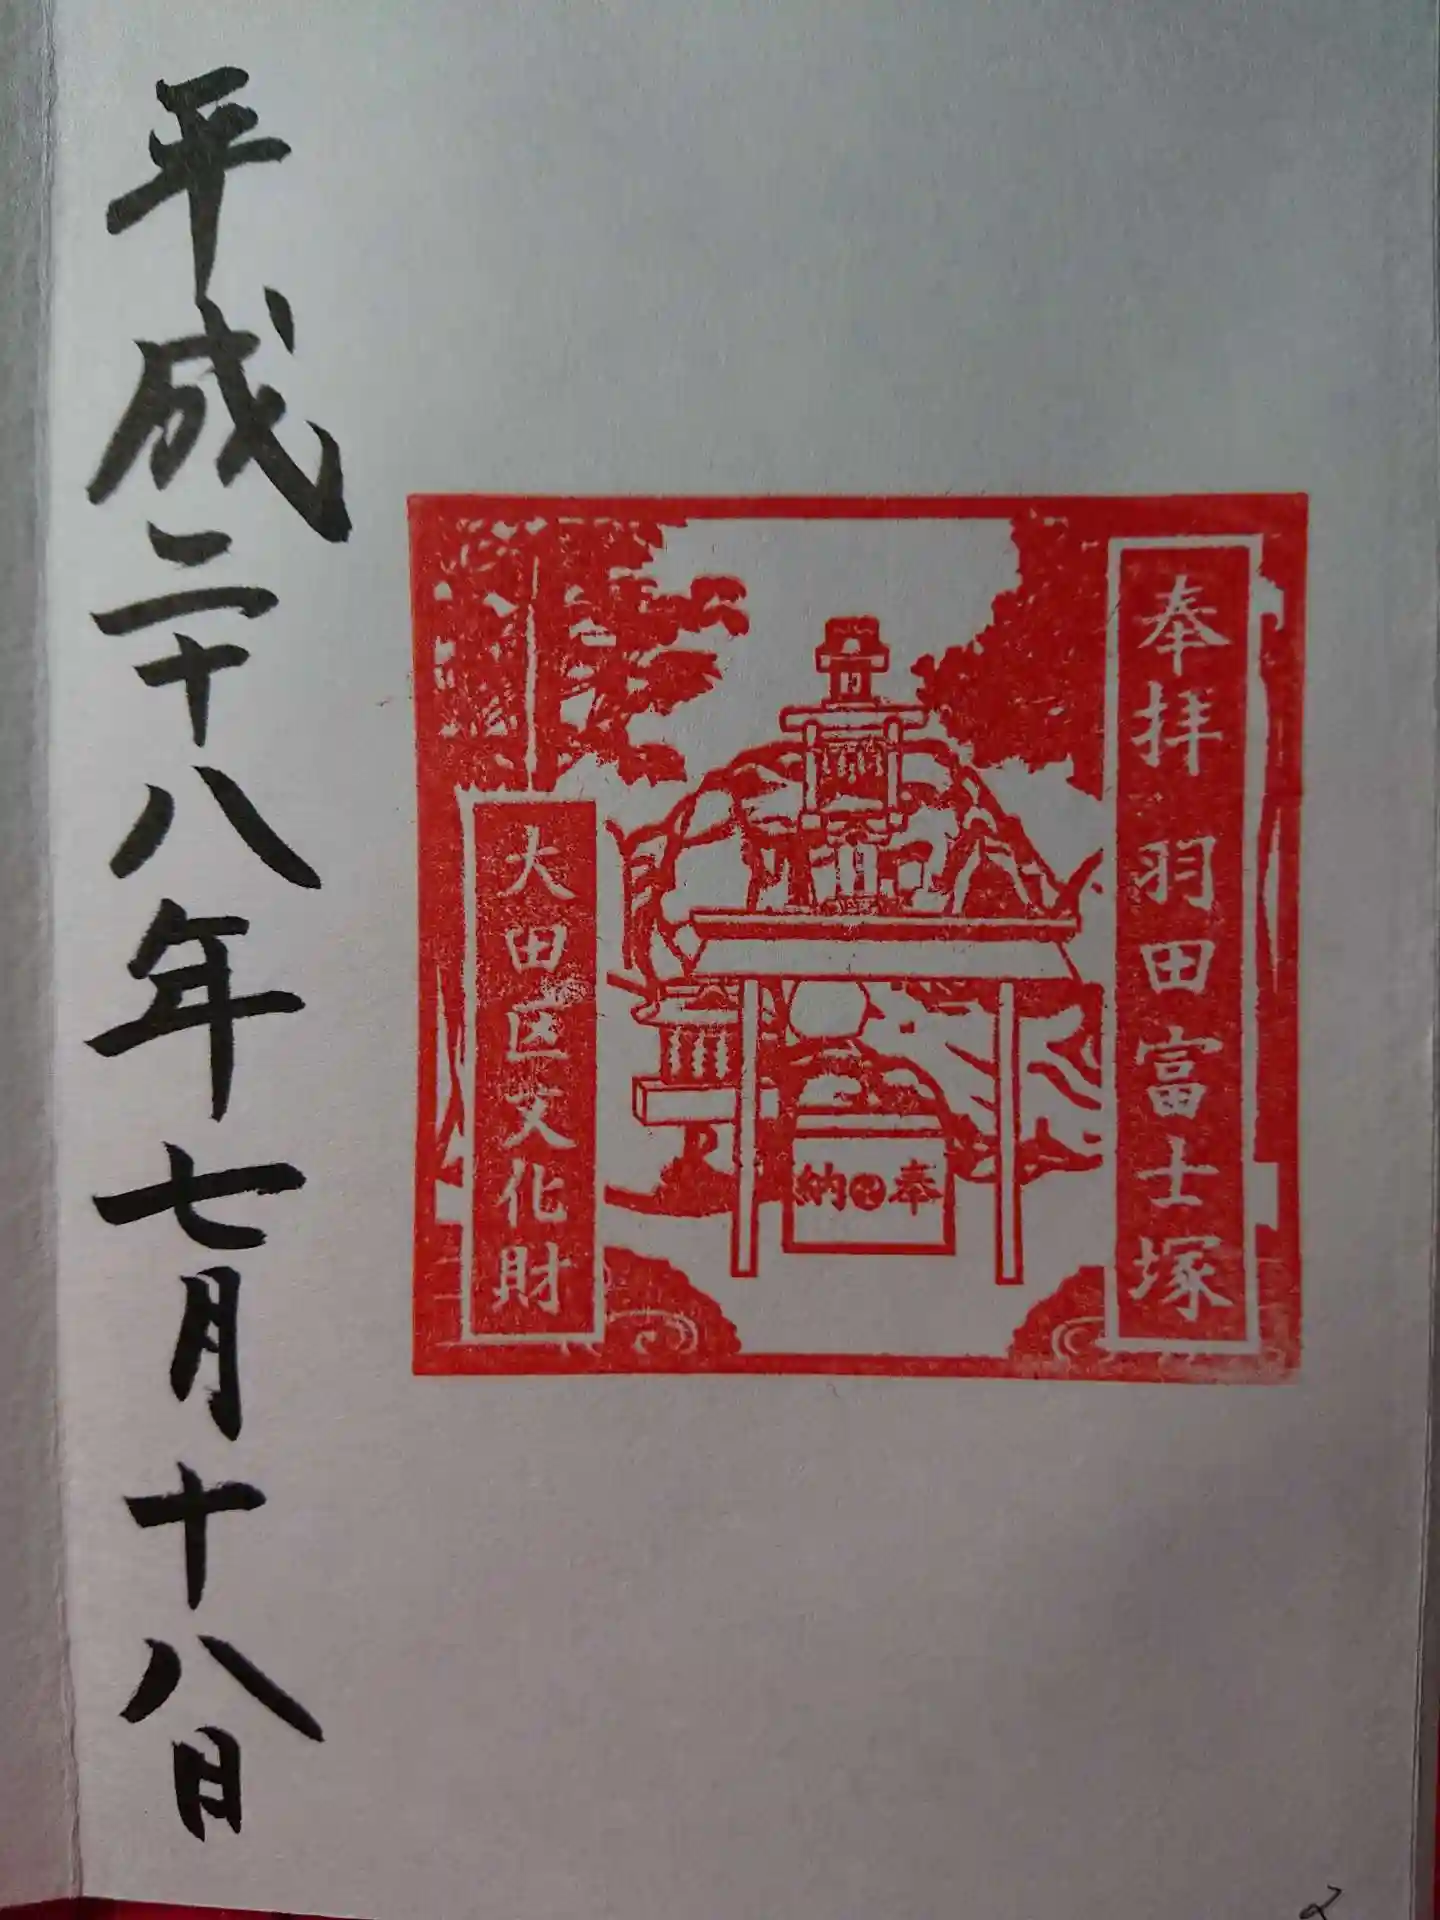 奉拝 羽田富士塚
奉納
大田区文化財
平成二十八年七月十八日